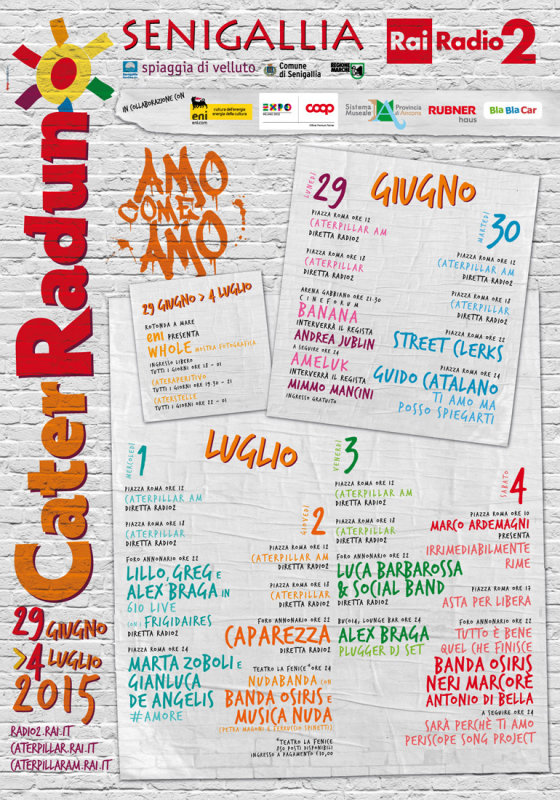 SENIGALLIA
spiaggia di velluto
Comune
di Senigallia
REGIONE
MARCHE
Rai Radio 2
IN COLLABORAZIONE CON
eni
cultura dell'energia
energia della cultura
eni.com
EXPO
MILANO 2015
coop
Sistema
Museale
Provincia
di Ancona
RUBNER
haus
Bla Bla Car
CaterRaduno
AMO
COME
AMO
29 GIUGNO > 4 LUGLIO
ROTONDA A MARE
eni PRESENTA
WHOLE MOSTRA FOTOGRAFICA
INGRESSO LIBERO
TUTTI I GIORNI ORE 18 - 01
CATERAPERITIVO
TUTTI I GIORNI ORE 19.30 - 21
CATERSTELLE
TUTTI I GIORNI ORE 22 - 01
GIUGNO
LUNEDÌ
29
PIAZZA ROMA ORE 12
CATERPILLAR AM
DIRETTA RADIO2
PIAZZA ROMA ORE 18
CATERPILLAR
DIRETTA RADIO2
ARENA GABBIANO ORE 21.30
CINEFORUM
BANANA
INTERVERRÀ IL REGISTA
ANDREA JUBLIN
A SEGUIRE ORE 24
AMELUK
INTERVERRÀ IL REGISTA
MIMMO MANCINI
INGRESSO GRATUITO
MARTEDÌ
30
PIAZZA ROMA ORE 12
CATERPILLAR AM
DIRETTA RADIO2
PIAZZA ROMA ORE 18
CATERPILLAR
DIRETTA RADIO2
PIAZZA ROMA ORE 22
STREET CLERKS
PIAZZA ROMA ORE 24
GUIDO CATALANO
TI AMO MA
POSSO SPIEGARTI
LUGLIO
MERCOLEDÌ
1
PIAZZA ROMA ORE 12
CATERPILLAR AM
DIRETTA RADIO2
PIAZZA ROMA ORE 18
CATERPILLAR
DIRETTA RADIO2
FORO ANNONARIO ORE 22
LILLO, GREG E
ALEX BRAGA IN
610 LIVE
CON I FRIGIDAIRES
DIRETTA RADIO2
PIAZZA ROMA ORE 24
MARTA ZOBOLI E
GIANLUCA
DE ANGELIS
#AMORE
GIOVEDÌ
2
PIAZZA ROMA ORE 12
CATERPILLAR AM
DIRETTA RADIO2
PIAZZA ROMA ORE 18
CATERPILLAR
DIRETTA RADIO2
FORO ANNONARIO ORE 22
CAPAREZZA
DIRETTA RADIO2
TEATRO LA FENICE* ORE 24
NUDABANDA CON
BANDA OSIRIS E
MUSICA NUDA
(PETRA MAGONI E FERRUCCIO SPINETTI)
*TEATRO LA FENICE
850 POSTI DISPONIBILI
INGRESSO A PAGAMENTO €10,00
VENERDÌ
3
PIAZZA ROMA ORE 12
CATERPILLAR AM
DIRETTA RADIO2
PIAZZA ROMA ORE 18
CATERPILLAR
DIRETTA RADIO2
FORO ANNONARIO ORE 22
LUCA BARBAROSSA
& SOCIAL BAND
DIRETTA RADIO2
BUCO14, LOUNGE BAR ORE 24
ALEX BRAGA
PLUGGER DJ SET
SABATO
4
PIAZZA ROMA ORE 10
MARCO ARDEMAGNI
PRESENTA
IRRIMEDIABILMENTE
RIME
PIAZZA ROMA ORE 17
ASTA PER LIBERA
FORO ANNONARIO ORE 22
TUTTO È BENE
QUEL CHE FINISCE
BANDA OSIRIS
NERI MARCORÈ
ANTONIO DI BELLA
A SEGUIRE ORE 24
SARÀ PERCHÉ TI AMO
PERISCOPE SONG PROJECT
29 GIUGNO
>4 LUGLIO
2015
RADIO2.RAI.IT
CATERPILLAR.RAI.IT
CATERPILLARAM.RAI.IT